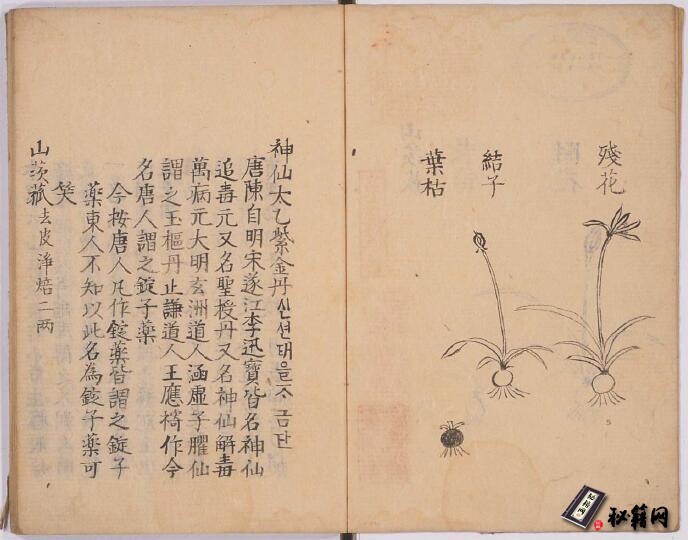 殘花
結子
葉枯
神仙太乙紫金丹신션태을ᄌᆞ금단
唐陳自明宋遂江李迅寶皆名神仙
追毒元又名聖授丹又名神仙解毒
萬病元大明玄洲道人涵虛子臞仙
謂之玉樞丹止謙道人王應作今
名唐人謂之錠子藥
今按唐人凡作錠藥皆謂之錠子
藥東人不知以此名為子藥可
笑
山茨菰去皮淨焙二两
秘籍网